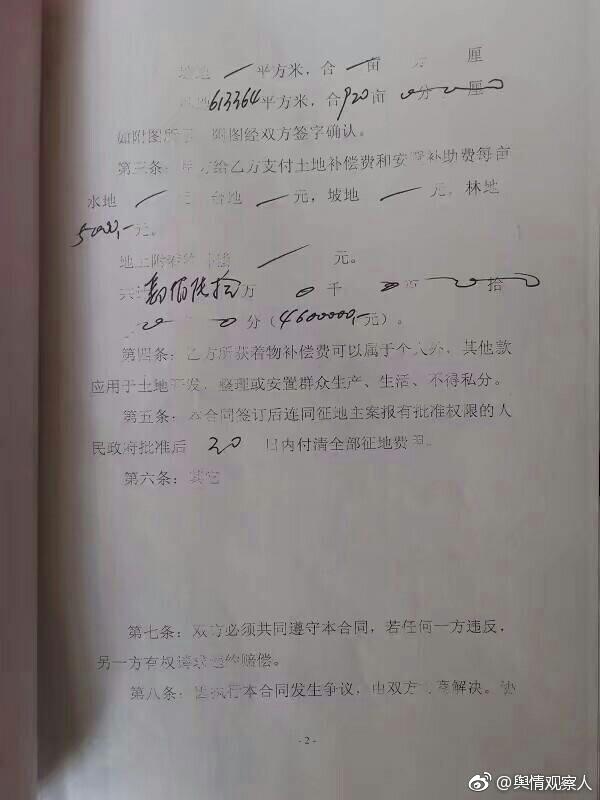 坡地 / 平方米，合 / 亩 分 厘
地613364平方米，合920亩 0分 0厘
如附图所 附图经双方签字确认。
第三条：甲方给乙方支付土地补偿费和安置补助费每亩
水地 / 元，台地 / 元，坡地 / 元，林地
5000,-元。
地上附着物补偿 / 元。
共 肆佰陆拾万 0 千 0 百 0 拾
0 0 分（4600000,-元）。
第四条：乙方所获着物补偿费可以属于个人外，其他款
应用于土地开发，整理或安置群众生产、生活、不得私分。
第五条：本合同签订后连同征地主案报有批准权限的人
民政府批准后 20 日内付清全部征地费用。
第六条：其它
第七条：双方必须共同遵守本合同，若任何一方违反，
另一方有权请求违约赔偿。
第八条：因执行本合同发生争议，由双方协商解决。协
- 2 -
@舆情观察人